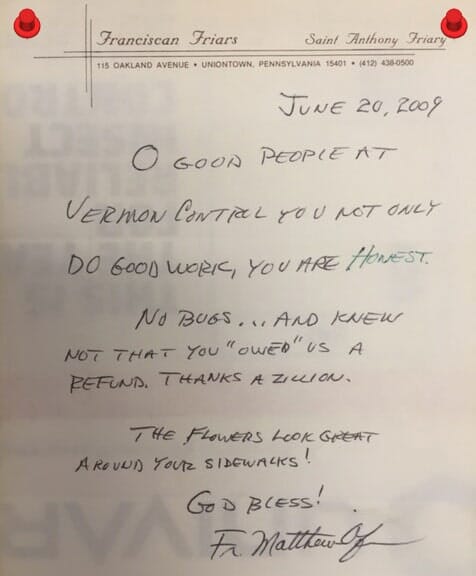 Franciscan Friars Saint Anthony Friary
115 OAKLAND AVENUE • UNIONTOWN, PENNSYLVANIA 15401 • (412) 438-0500
JUNE 20, 2009
O GOOD PEOPLE AT
VERMON CONTROL YOU NOT ONLY
DO GOOD WORK, YOU ARE HONEST.
NO BUGS... AND KNEW
NOT THAT YOU "OWED" US A
REFUND. THANKS A ZILLION.
THE FLOWERS LOOK GREAT
AROUND YOUR SIDEWALKS!
GOD BLESS!
Fr. Matthew